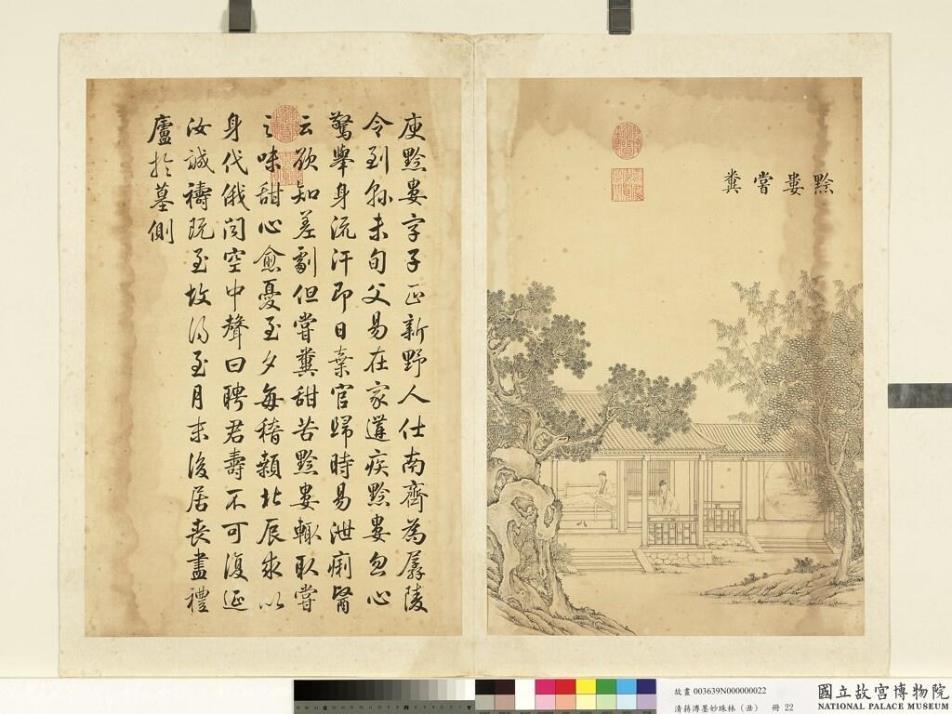 黔婁嘗糞
庾黔婁字子正新野人仕南齊為孱陵
令到縣未旬父易在家遘疾黔婁忽心
驚舉身流汗即日棄官歸時易泄痢醫
云欲知差劇但嘗糞甜苦黔婁輒取嘗
之味甜心愈憂至夕每稽顙北辰求以
身代俄聞空中聲曰聘君壽不可復延
汝誠禱既至故得至月末後居喪盡禮
廬於墓側
故畫 003639N000000022
清蔣溥墨妙珠林（丑） 冊 22
國立故宮博物院
NATIONAL PALACE MUSEUM